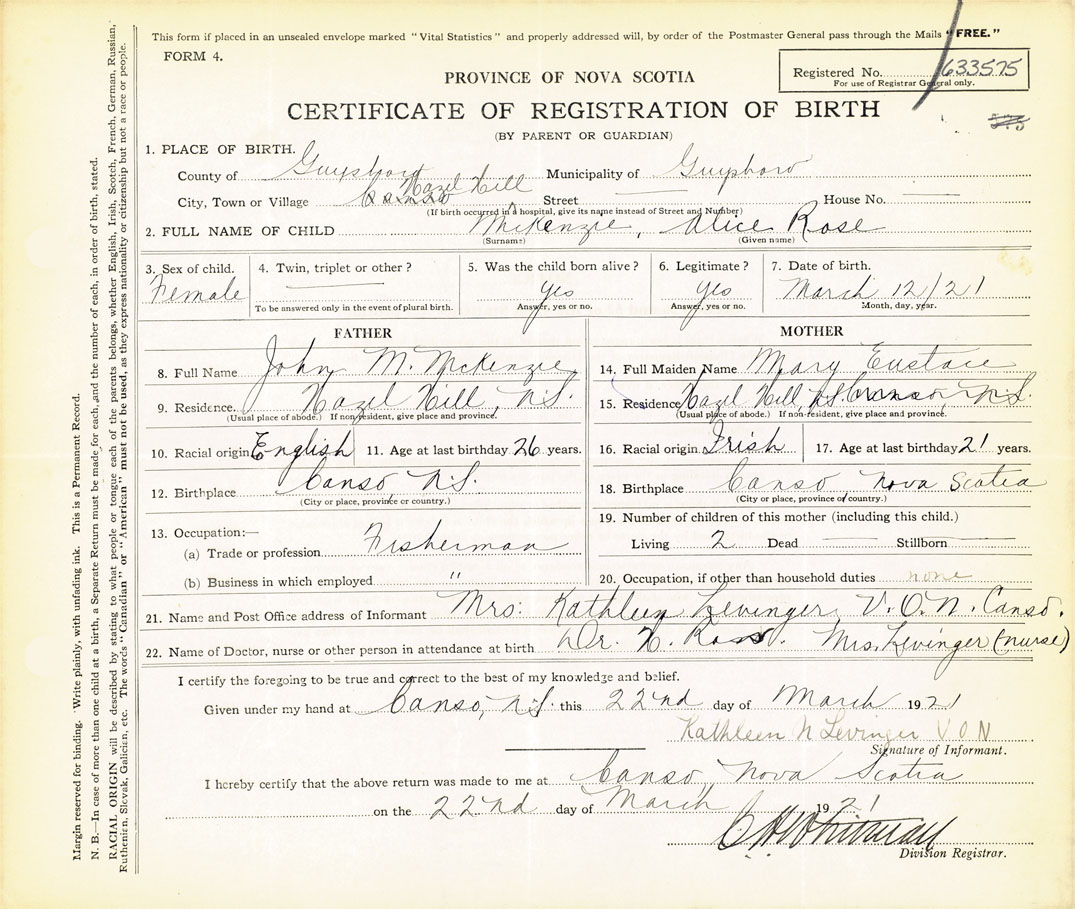 This form if placed in an unsealed envelope marked "Vital Statistics" and properly addressed will, by order of the Postmaster General pass through the Mails "FREE."
FORM 4.
Registered No. 633575
For use of Registrar General only.
PROVINCE OF NOVA SCOTIA
CERTIFICATE OF REGISTRATION OF BIRTH
(BY PARENT OR GUARDIAN)
1. PLACE OF BIRTH.
County of Guysboro Municipality of Guysboro
City, Town or Village Canso Hazel Hill Street House No.
(If birth occurred in hospital, give its name instead of Street and Number)
2. FULL NAME OF CHILD McKenzie, Alice Rose
(Surname) (Given name)
3. Sex of child. 4. Twin, triplet or other? 5. Was the child born alive? 6. Legitimate? 7. Date of birth.
Female yes yes March 12/21
To be answered only in the event of plural birth. Answer, yes or no. Answer, yes or no. Month, day, year.
FATHER
8. Full Name John M. McKenzie
9. Residence. Hazel Hill, N.S.
(Usual place of abode.) If non-resident, give place and province.
10. Racial origin English 11. Age at last birthday 26 years.
12. Birthplace Canso N.S.
(City or place, province or country.)
13. Occupation:—
(a) Trade or profession Fisherman
(b) Business in which employed "
MOTHER
14. Full Maiden Name Mary Eustace
15. Residence Hazel Hill N.S. Canso, N.S.
(Usual place of abode.) If non-resident, give place and province.
16. Racial origin Irish 17. Age at last birthday 21 years.
18. Birthplace Canso Nova Scotia
(City or place, province or country.)
19. Number of children of this mother (including this child.)
Living 2 Dead Stillborn
20. Occupation, if other than household duties none
21. Name and Post Office address of Informant Mrs. Kathleen Levinger V.O.N. Canso.
22. Name of Doctor, nurse or other person in attendance at birth Dr. H. Ross. Mrs. Levinger (nurse)
I certify the foregoing to be true and correct to the best of my knowledge and belief.
Given under my hand at Canso, N.S. this 22nd day of March 1921
Kathleen N Levinger V O N
Signature of Informant.
I hereby certify that the above return was made to me at Canso Nova Scotia
on the 22nd day of March 1921
C H Whitman
Division Registrar.
Margin reserved for binding. Write plainly, with unfading ink. This is a Permanent Record.
N. B.—In case of more than one child at a birth, a Separate Return must be made for each, and the number of each, in order of birth, stated.
RACIAL ORIGIN will be described by stating to what people or tongue each of the parents belongs, whether English, Irish, Scotch, French, German, Russian,
Ruthenian, Slovak, Galician, etc. The words "Canadian" or "American" must not be used, as they express nationality or citizenship but not a race or people.